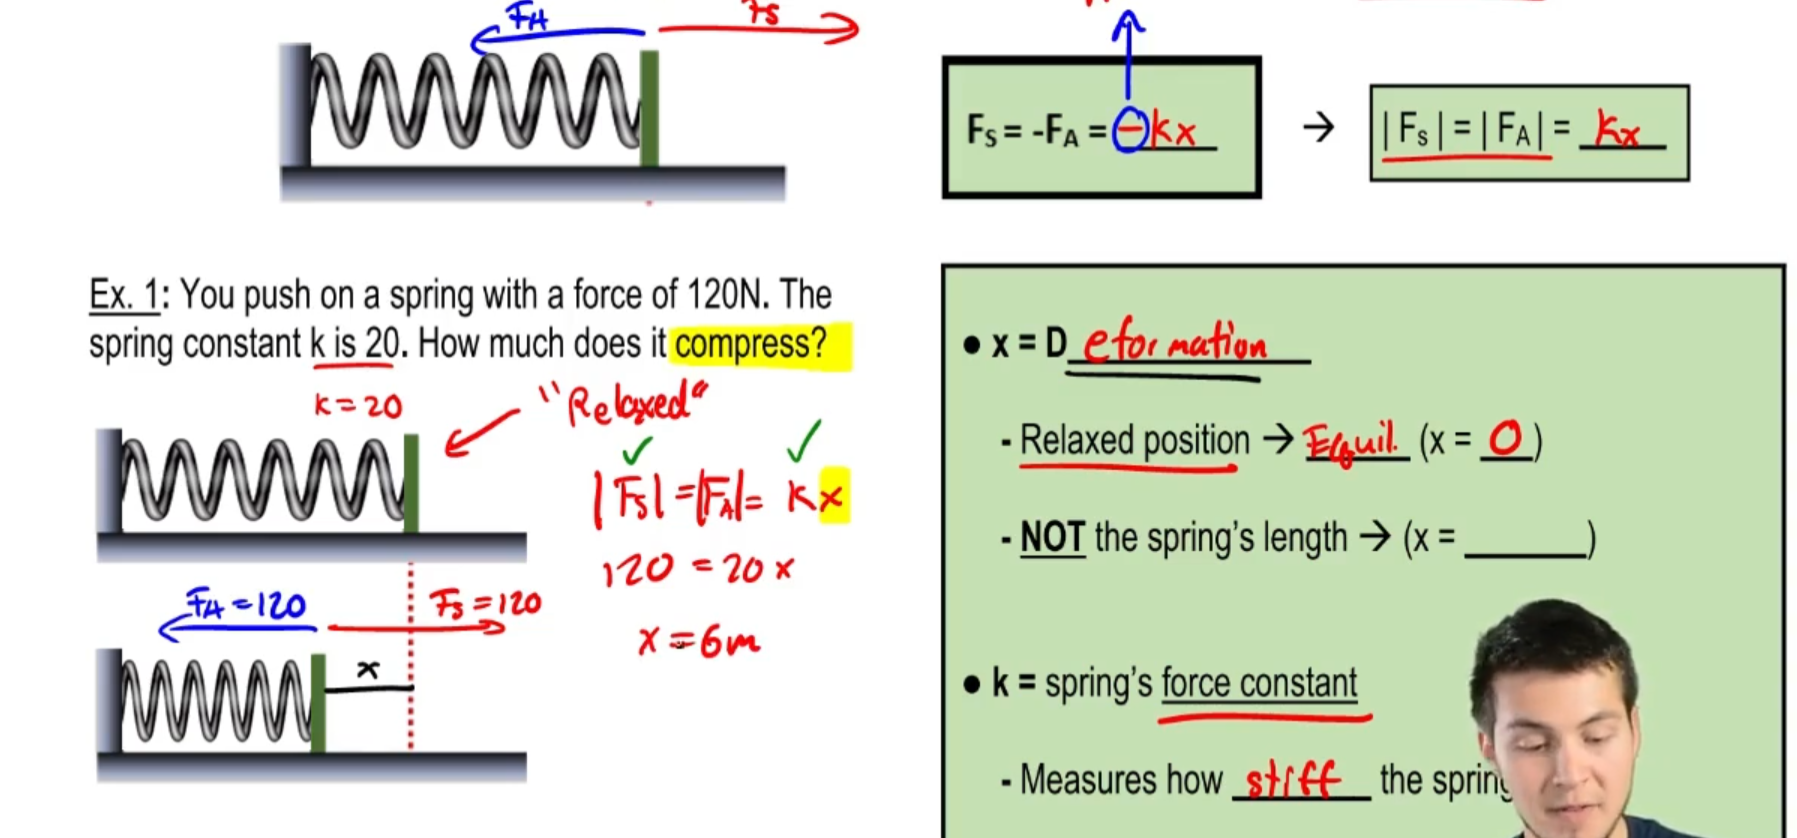 FA
Fs
Fs = -FA = -kx
→
|Fs| = |FA| = kx
Ex. 1: You push on a spring with a force of 120N. The
spring constant k is 20. How much does it compress?
k = 20
"Relaxed"
✓ ✓
|Fs| = |FA| = kx
120 = 20x
x = 6m
FA = 120
Fs = 120
x
● x = Deformation
- Relaxed position → Equil. (x = 0)
- NOT the spring's length → (x = ______)
● k = spring's force constant
- Measures how stiff the spring